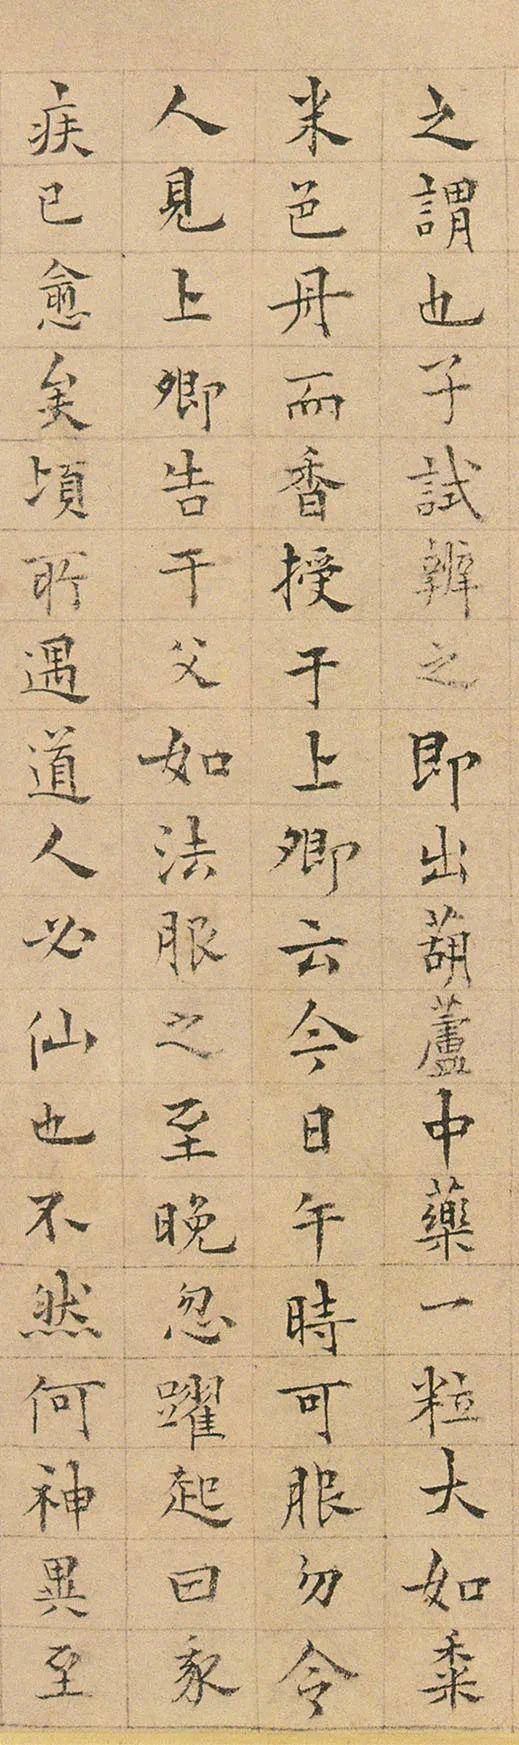 之謂也子試辨之即出葫蘆中藥一粒大如黍
米色丹而香授于上卿云今日午時可服勿令
人見上卿告于父如法服之至晚忽躍起曰家
疾已愈矣頃所遇道人必仙也不然何神異至